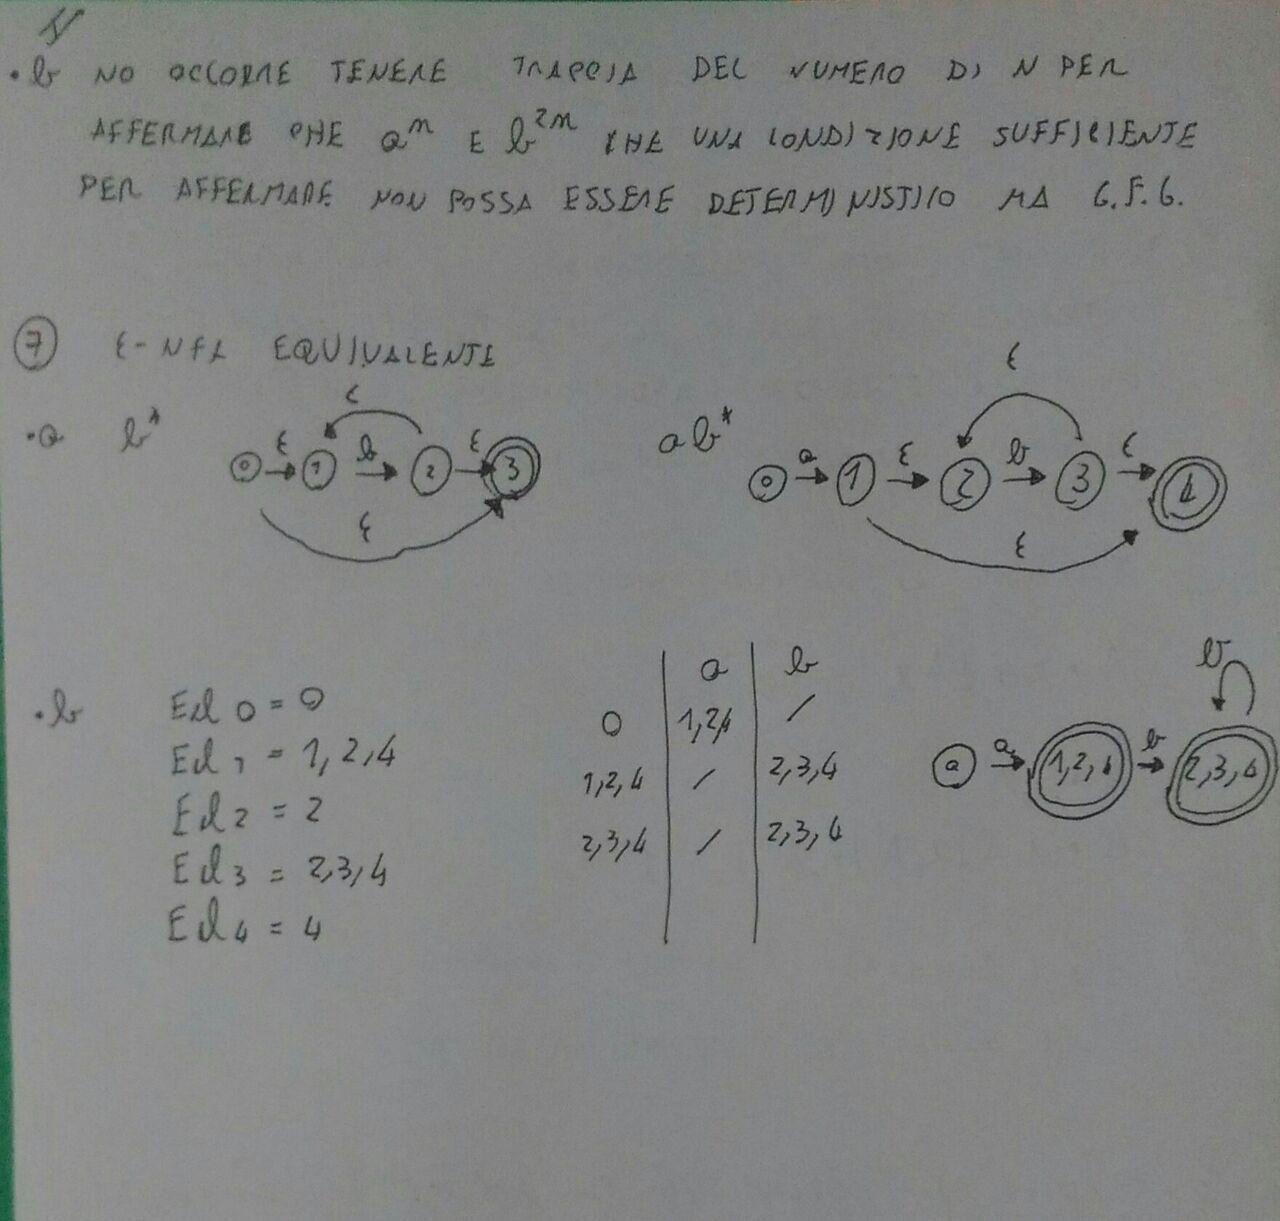 • b NO OCCORRE TENERE TRACCIA DEL NUMERO DI N PER
AFFERMARE CHE aⁿ E b²ⁿ CHE UNA CONDIZIONE SUFFICIENTE
PER AFFERMARE NON POSSA ESSERE DETERMINISTICO MA G.F.G.
7 ε-NFA EQUIVALENTE
• a b* ab*
ε ε
0 ε 1 b 2 ε 3
0 a 1 ε 2 b 3 ε 4
ε ε
• b
Ecl 0 = 0
Ecl 1 = 1,2,4
Ecl 2 = 2
Ecl 3 = 2,3,4
Ecl 4 = 4
a b
0 1,2,4 /
1,2,4 / 2,3,4
2,3,4 / 2,3,4
b
a a 1,2,4 b 2,3,4